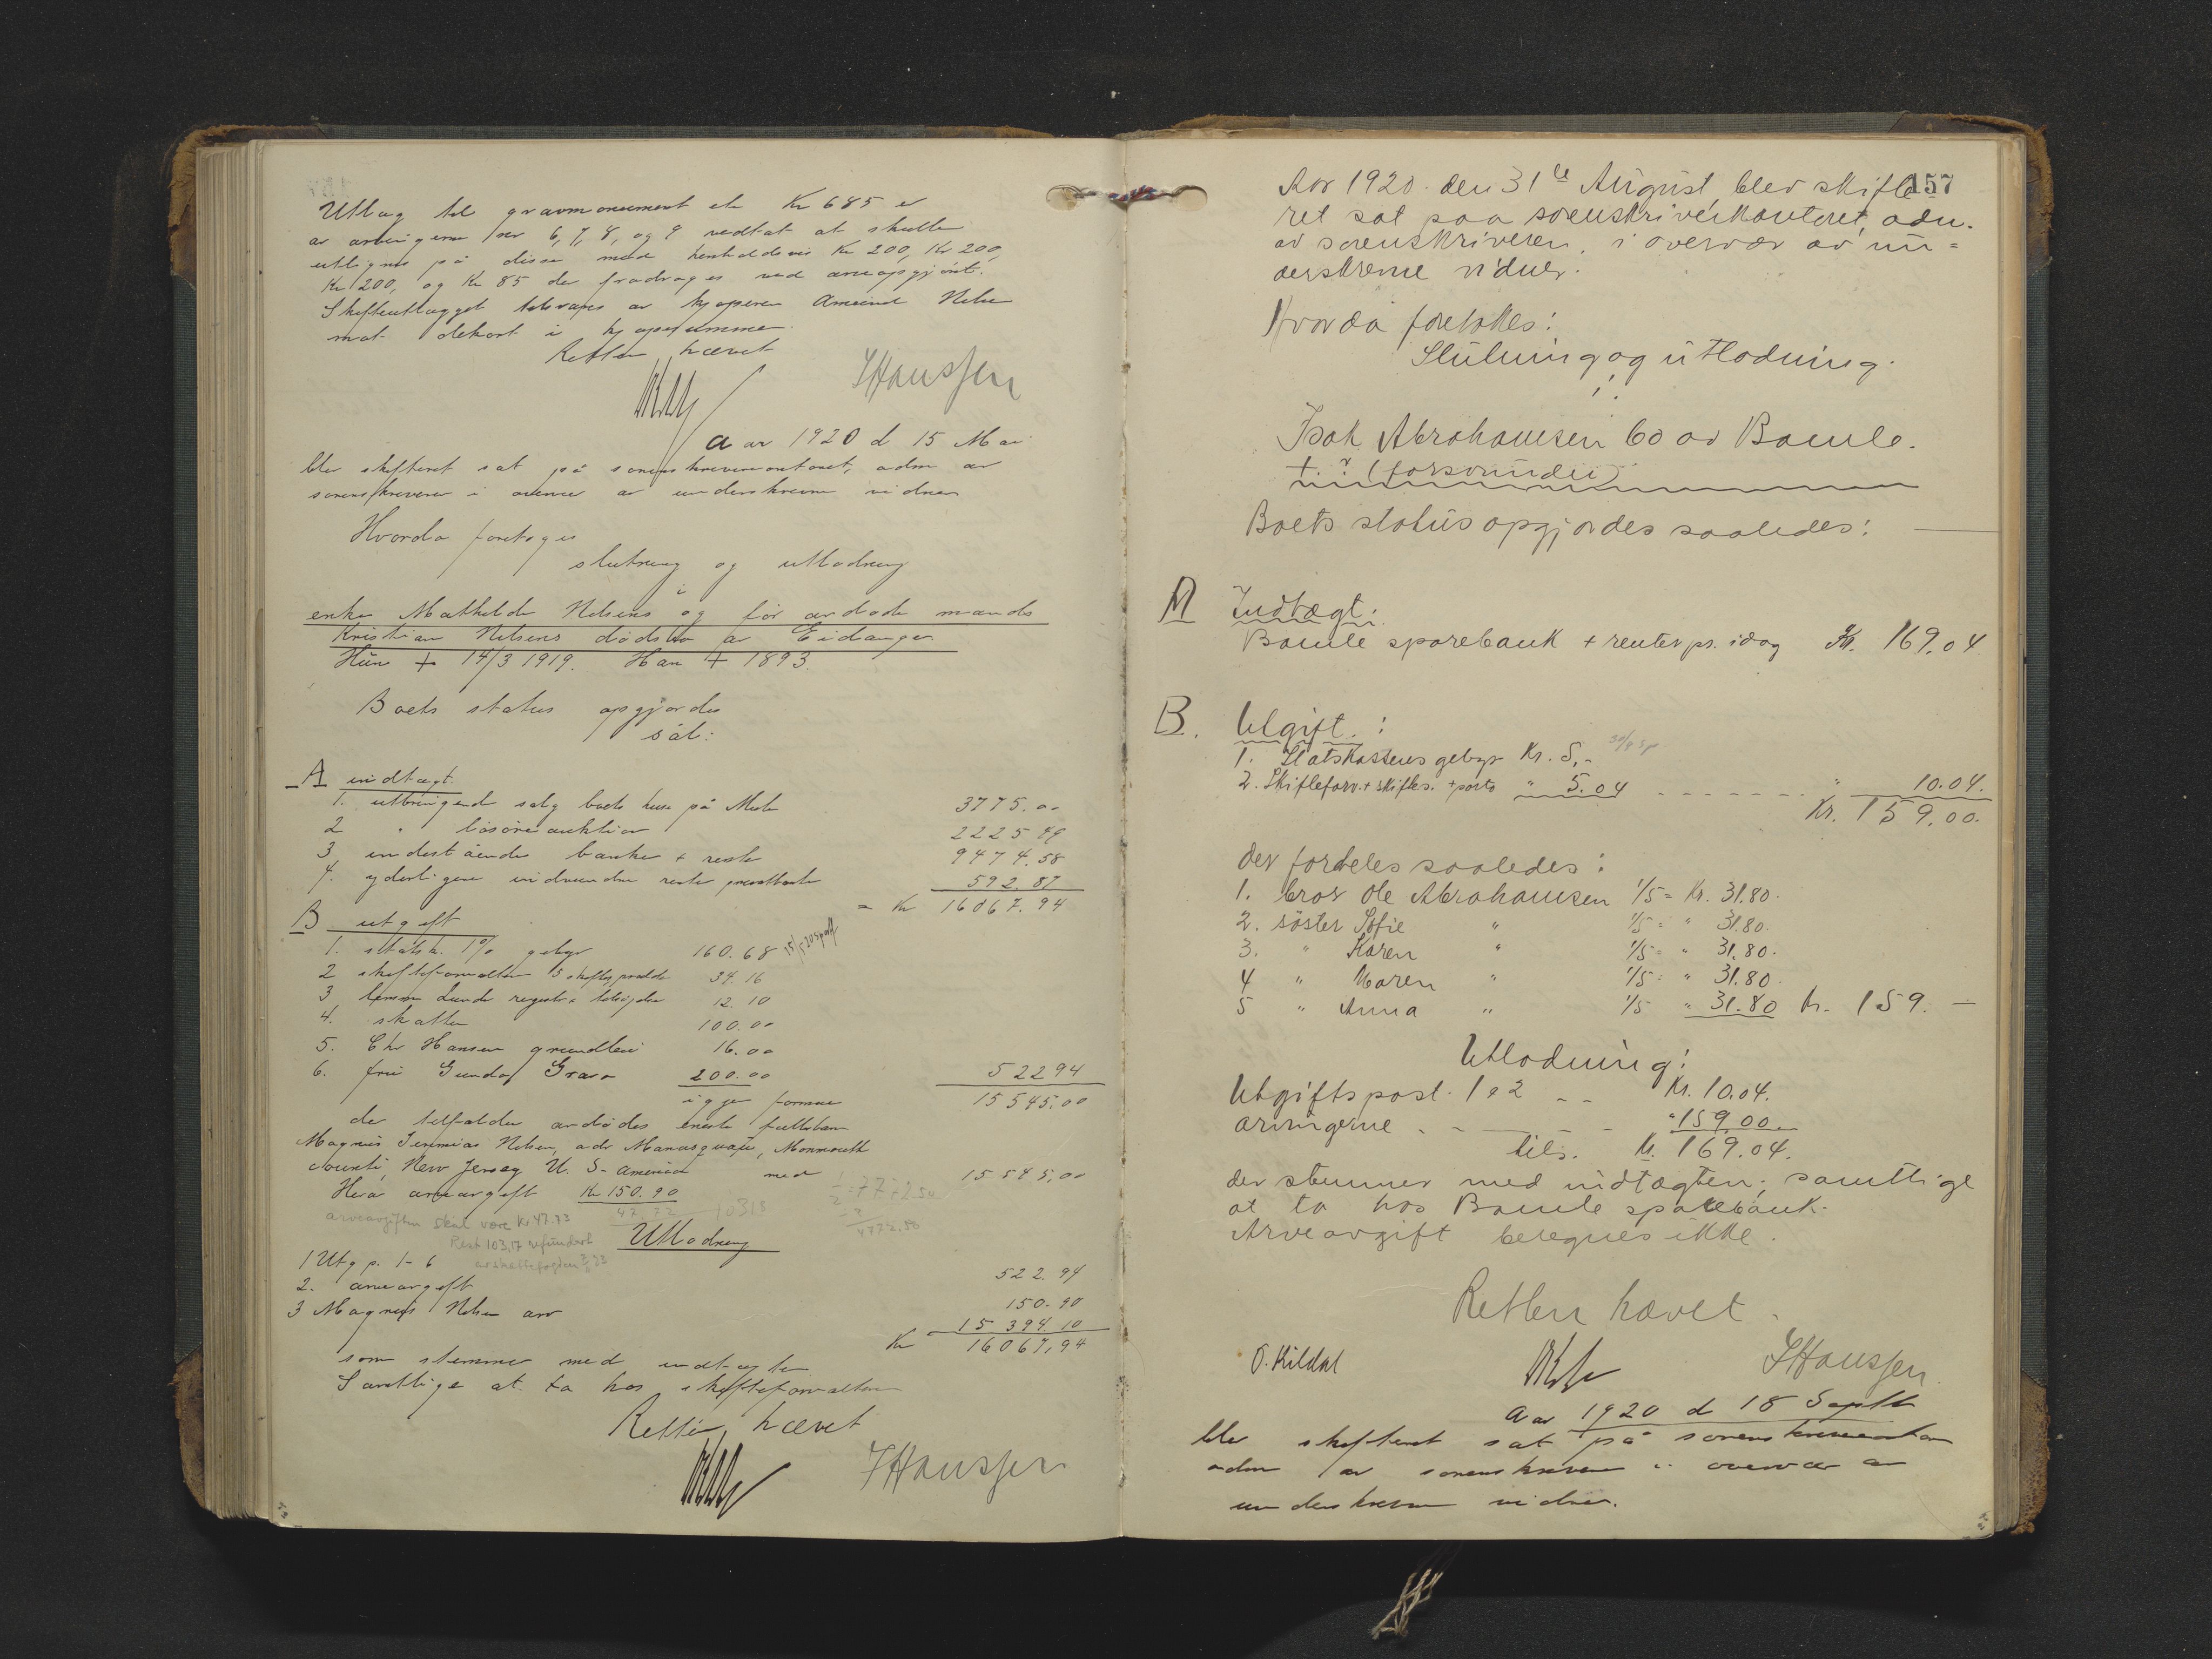 Utlæg til gravmonument etc Kr 685 er
av arvingerne ser 6, 7, 8, og 9 vedtat at skulle
utlignes på disse med henholdsvis Kr 200, Kr 200,
Kr 200, og Kr 85 der fradrages ved arveopgjöret.
Skifteutlægget tilsvares av kjöperen Amund Nelsen
mot dekort i kjöpesummen.
Retten hævet
SHanssen
Aar 1920 d 15 Mai
blev skifteret sat på sorenskriverkontoret, adm av
sorenskriveren i overvær av underskrevne vidner
Hvorda foretoges
slutning og utlodning
i
enke Mathilde Nelsens og før avdøde mands
Kristian Nelsens dödsbo av Eidanger
Hun + 14/3 1919. Han + 1893.
Boets status opgjordes
sål:
A indtægt.
1. utbringende salg boets hus på Mule 3775.00
2 " lösöreauktion 2225 49
3 indestående banker + rente 9474.58
4. yderligere indvundne rente 592.87
= Kr 16067.94
B utgift
1. statsk. 1% gebyr 160.68
2 skifteforvalteren 34.16
3 lensm Lunde registr + 12.10
4. skatter 100.00
5. Chr Hansen grundleie 16.00
6. fru Gunda Grava 200.00 522 94
igjen formue 15545.00
der tilfalder avdødes eneste fællesbarn
Magnus Jeremias Nelsen, adr Manasquan, Monmouth
county, New Jersey U. S. America med 15545,00
Herav arveavgift Kr 150.90
arveavgiften skal være Kr 47.73
Rest 103,17 refundert
av skattefogden
Utlodning
1 Utg p. 1-6 522.94
2. arveavgift 150.90
3 Magnus Nelsen arv 15 394.10
Kr 16067,94
som stemmer med indtægten
Samtlige at ta hos skifteforvalteren
Retten hævet
SHanssen
157
Aar 1920 den 31te August, blev skifte
ret sat paa sorenskriverkontoret, adm.
av sorenskriveren, i overvær av un=
derskrevne vidner.
Hvorda foretokes:
Slutning og utlodning.
i
Isak Abrahamsen bo av Bamle.
+ ? (forsvunden)
Boets status opgjordes saaledes:
A Indtægt:
Bamle sparebank + renter pr. idag Kr. 169.04
B. Utgift:
1. Statskassens gebyr Kr. 5,-
2. Skifteforv. + skifles. + porto " 5.04 " 10.04.
Kr. 159.00.
der fordeles saaledes:
1. bror Ole Abrahamsen 1/5 = Kr. 31.80.
2. söster Sofie " 1/5 = " 31.80.
3. " Karen " 1/5 = " 31.80.
4 " Maren " 1/5 = " 31.80.
5 " Anna " 1/5 " 31.80 Kr. 159. —
Utlodning:
Utgiftspost 1 & 2 Kr. 10.04.
arvingerne " 159.00.
tils. Kr. 169.04.
der stemmer med indtægten; samtlige
at ta hos Bamle sparebank.
Arveavgift beregnes ikke.
Retten hævet.
O. Kildal
SHanssen.
Aar 1920 d 18 Septbr
blev skifteret sat på sorenskriverkontor
adm av sorenskriveren i overvær av
underskrevne vidner.